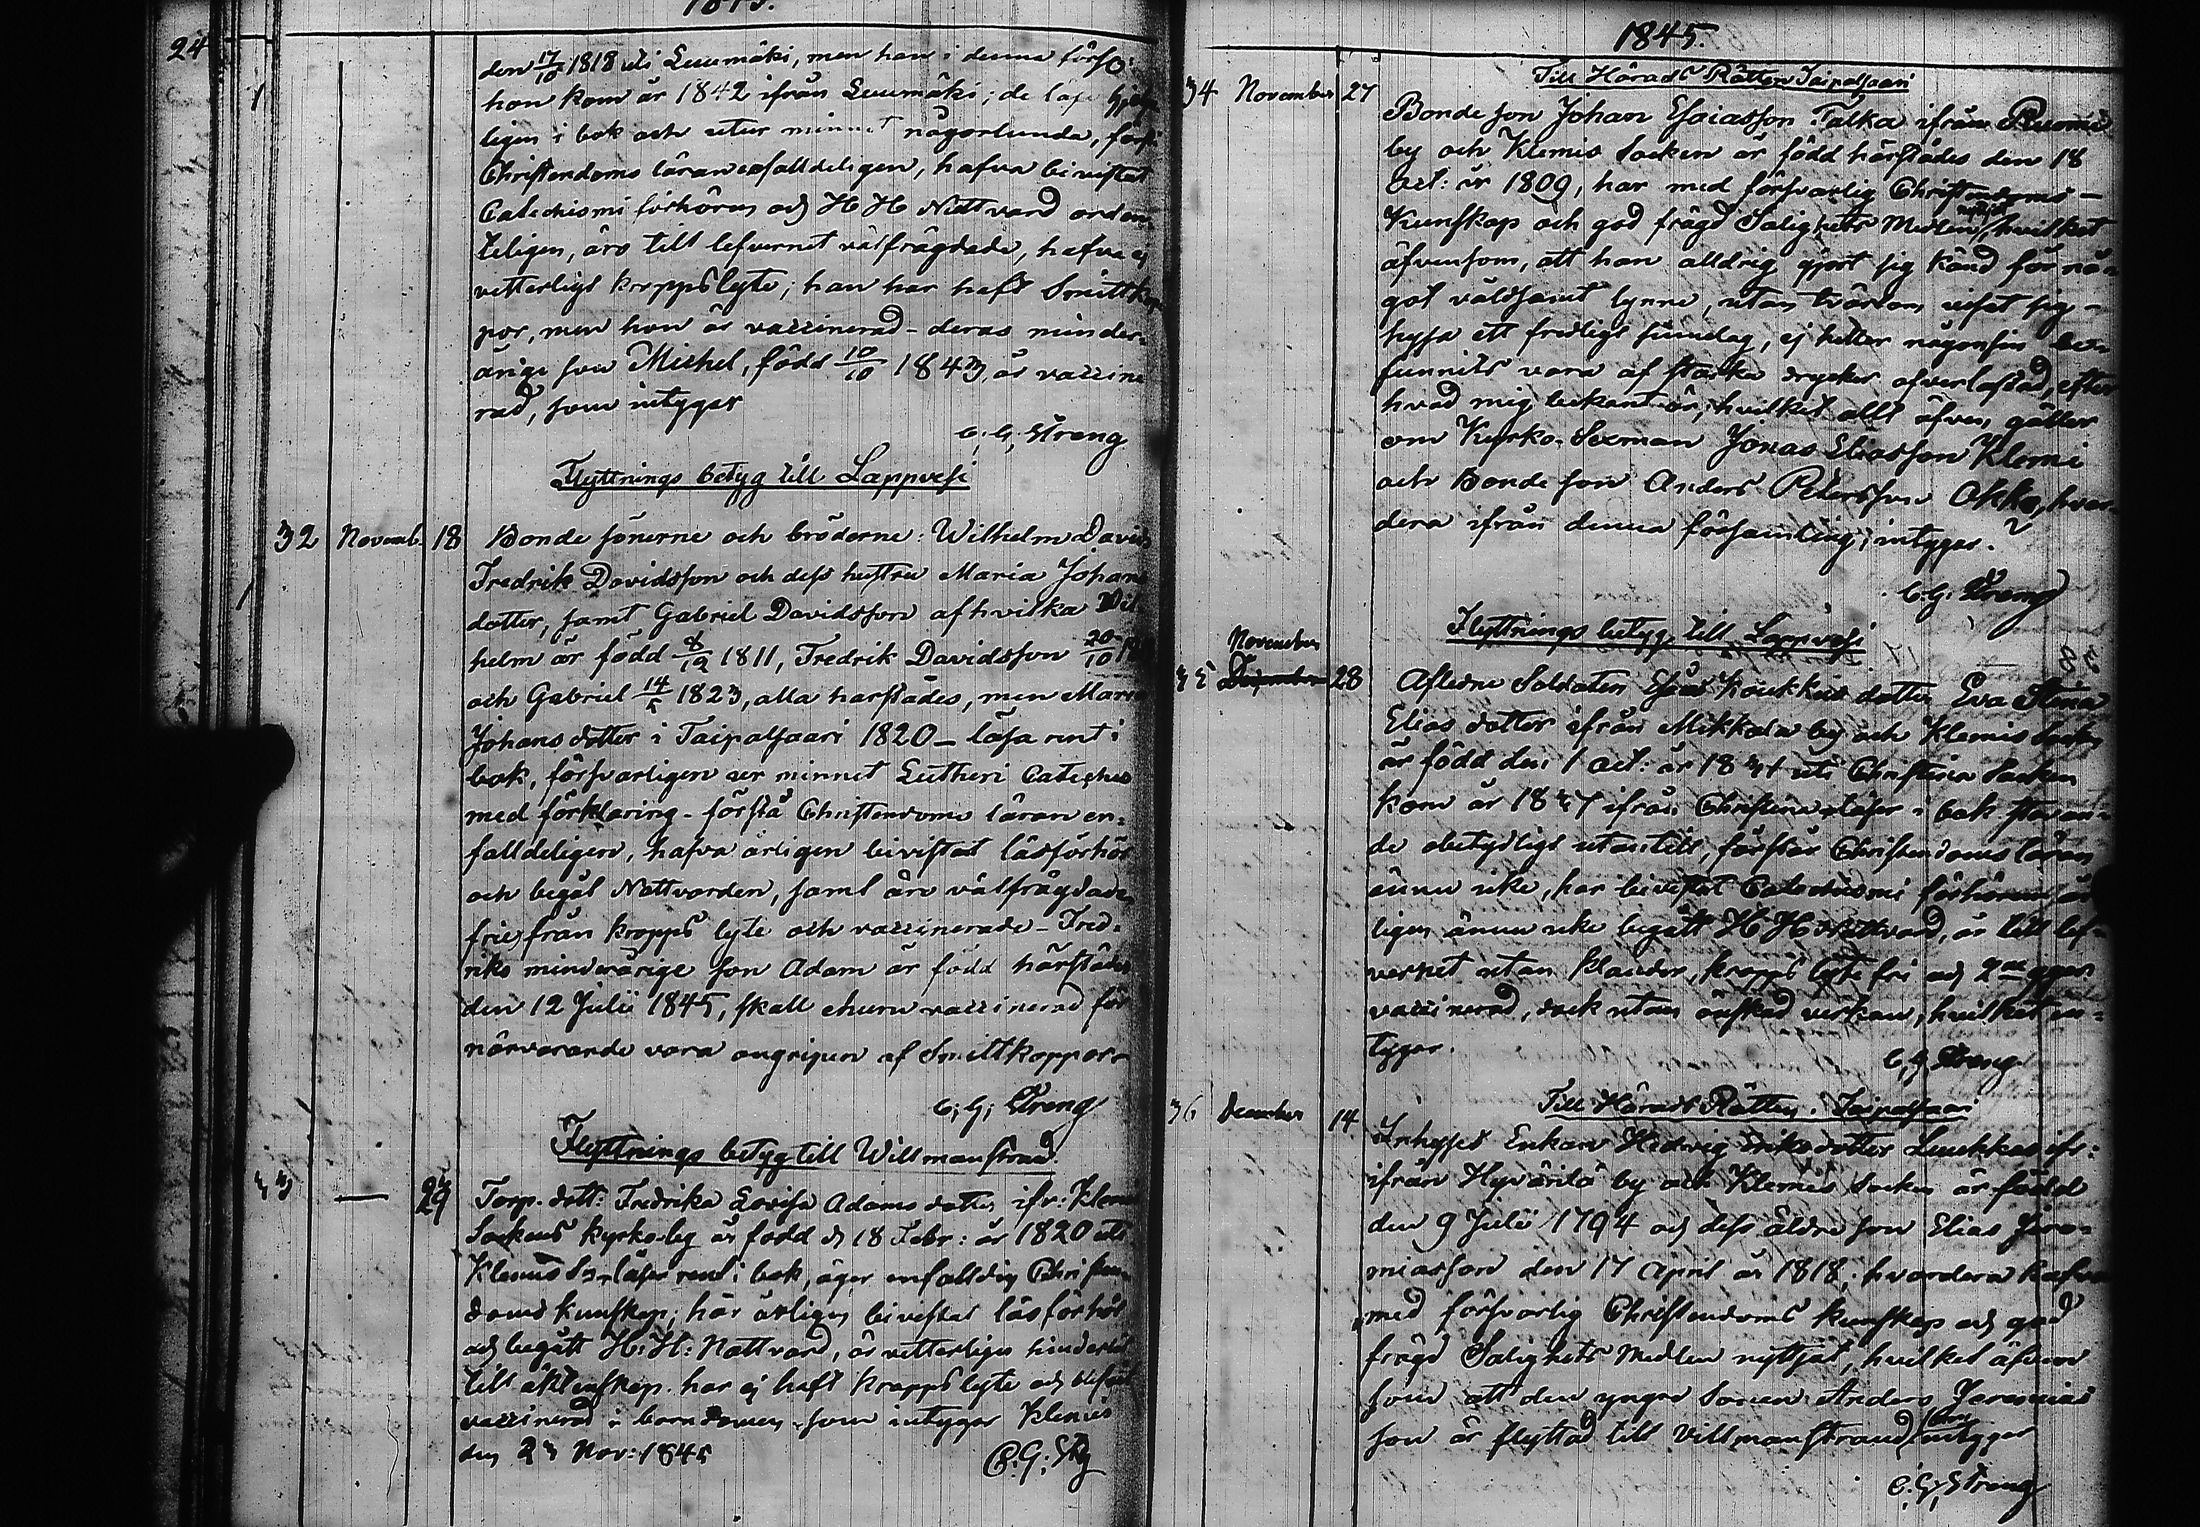 1845.
24
den 17/10 1818 uti Luumäki, men han i denna förs:
hon kom år 1842 ifrån Luumäki; de läsa hjelp
ligen i bok och utur minnet någorlunda, förstå
Christendoms läran enfalldeligen, hafva bivistat
Catechismi förhören och H H Nattvard orden
teligen, äro till lefvernet välfrägdade, hafva ej
vetterligt kroppslyte; han har haft Smittkop
por, men hon är vaccinerad - deras minder-
årige son Michel, född 10/10 1843, är vaccine
rad, som intygar
C. G. Streng
Flyttnings betyg till Lappvesi
32 Novemb. 18 Bonde sönerne och bröderne: Wilhelm Davids
Fredrik Davidsson och dess hustru Maria Johans
dotter, samt Gabriel Davidsson af hvilka Wil
helm är född 8/12 1811, Fredrik Davidsson 20/10
och Gabriel 14/5 1823, alla härstädes, men Maria
Johans dotter i Taipalsaari 1820 - läsa rent i
bok, försvarligen ur minnet Lutheri Cateches
med förklaring - förstå Christendoms läran en-
falldeligen, hafva årligen bivistat läsförhör
och begåt Nattvarden, samt äro välfrägdade,
frie från kropps lyte och vaccinerade - Fred-
riks minderårige son Adam är född härstädes
den 12 Julii 1845, skall ehuru vaccinerad för
närvarande vara angripen af Smittkoppor
C. G. Streng
Flyttnings betyg till Willmanstrand
33 — 23 Torp. dott: Fredrika Lovisa Adams dotter ifr: Klemis
Sockens kyrko by är född d 18 Febr: år 1820 uti
Klemis Sn, läser rent i bok, äger enfalldig Christen-
doms kunskap, har årligen bivistat läsförhör
och begått H: H: Nattvard, är vetterligen hinderlös
till äktenskap, har ej haft kroppslyte och
vaccinerad i barndomen, som intygar Klemis
den 23 Nov: 1845 C. G. Stg
1845.
Till Härads Rätten Taipalsaari
34 November 27 Bonde son Johan Esaiasson Talka ifrån
by och Klemis Socken är född härstädes den 18
Oct: år 1809, har med försvarlig Christendoms-
Kunskap och god frägd Salighets Medlen nyttjat, hvilket
äfvensom, att han alldrig gjort sig känd för nå-
got våldsamt lynne, utan tvärtom viset sig -
hysa ett fredligt sinnelag, ej heller någonsin be-
funnits vara af starka drycker öfverlastad, efter
hvad mig bekant är, hvilket allt äfven gäller
om Kyrko-Sexman Jonas Eliasson Klemi
och Bonde son Anders Petersson Okko, hvar-
dera ifrån denna församling; intygar.
C. G. Streng
Flyttnings betyg till Lappvesi
35 November December 28 Afledne Soldaten Esaias Koukkus dotter Eva Stina
Elias dotter ifrån Mikkola by och Klemis Socken
är född den 1 Oct: år 1831 uti Christina Socken
kom år 1837 ifrån Christina, läser i bok stavan-
de obetydligt utantill, förstår Christendoms läran
ännu icke, har bivistat Catechismi förhören år
ligen ännu icke begått H H Nattvard, är till lef-
vernet utan klander, kropps lyte fri och 2ne ggor
vaccinerad, dock utan önskad verkan, hvilket in-
tygar.
C. G. Streng
Till Härads Rätten, Taipalsaari
36 December 14 Inhyses Enkan Hedvig Eriks dotter Luukkas ifr:
ifrån Hyvärilä by och Klemis Socken är född
den 9 Julii 1794 och dess äldre son Elias Jere-
miasson den 17 April år 1818; hvardera hafva
med försvarlig Christendoms kunskap och god
frägd Salighets Medlen nyttjat, hvilket äfven
som att den yngre sonen Anders Jeremias
son är flyttad till Villmanstrand, som intygar
C. G. Streng